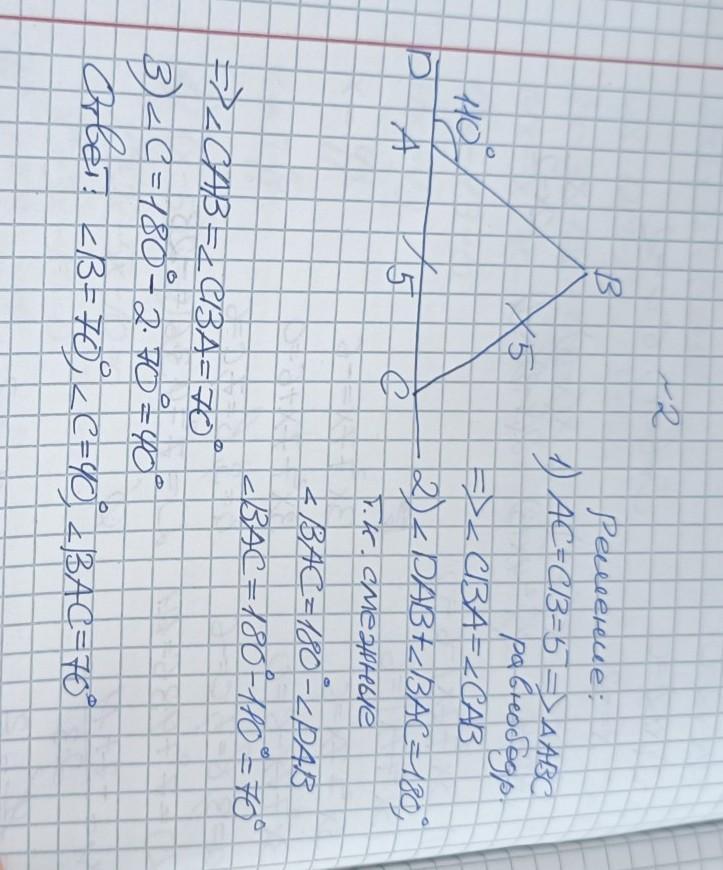 ~2
B
110°
5
D
A
5
C
Решение:
1) AC=CB=5 => ΔABC
равнобедр.
=> ∠CBA=∠CAB
2) ∠DAB+∠BAC=180°,
т.к. смежные
∠BAC=180°-∠DAB
∠BAC=180°-110°=70°
=> ∠CAB=∠CBA=70°
3) ∠C=180°-2·70°=40°
Ответ: ∠B=70°, ∠C=40°, ∠BAC=70°